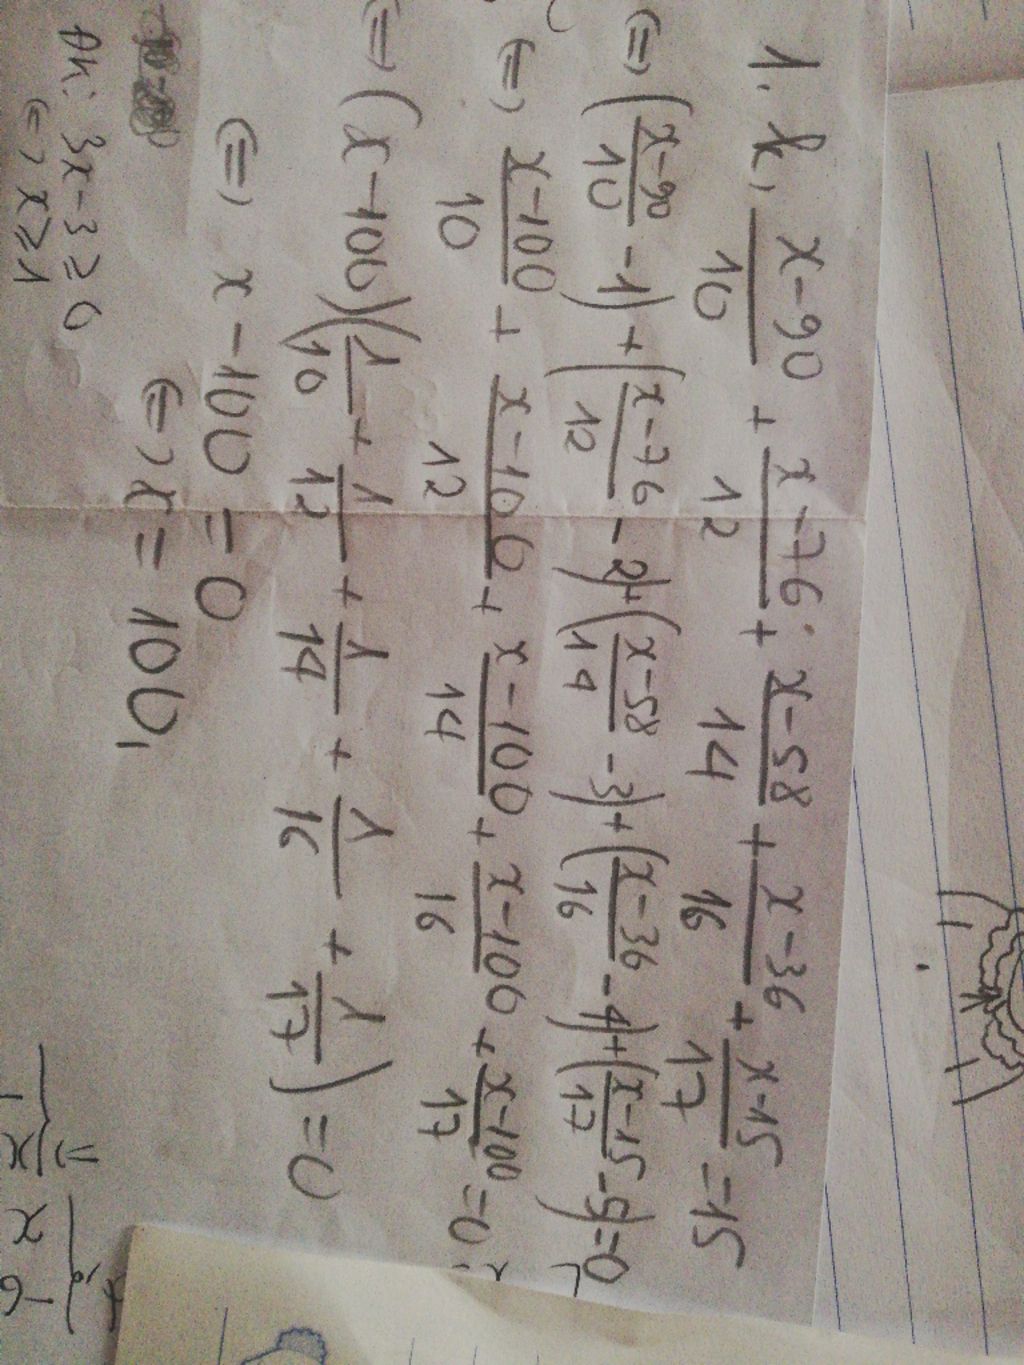 1. k, (x-90)/10 + (x-76)/12 + (x-58)/14 + (x-36)/16 + (x-15)/17 = 15
<=> ((x-90)/10 - 1) + ((x-76)/12 - 2) + ((x-58)/14 - 3) + ((x-36)/16 - 4) + ((x-15)/17 - 5) = 0
<=> (x-100)/10 + (x-100)/12 + (x-100)/14 + (x-100)/16 + (x-100)/17 = 0
<=> (x-100)(1/10 + 1/12 + 1/14 + 1/16 + 1/17) = 0
<=> x-100 = 0
<=> x = 100,
ĐK: 3x-3 ≥ 0
<=> x ≥ 1